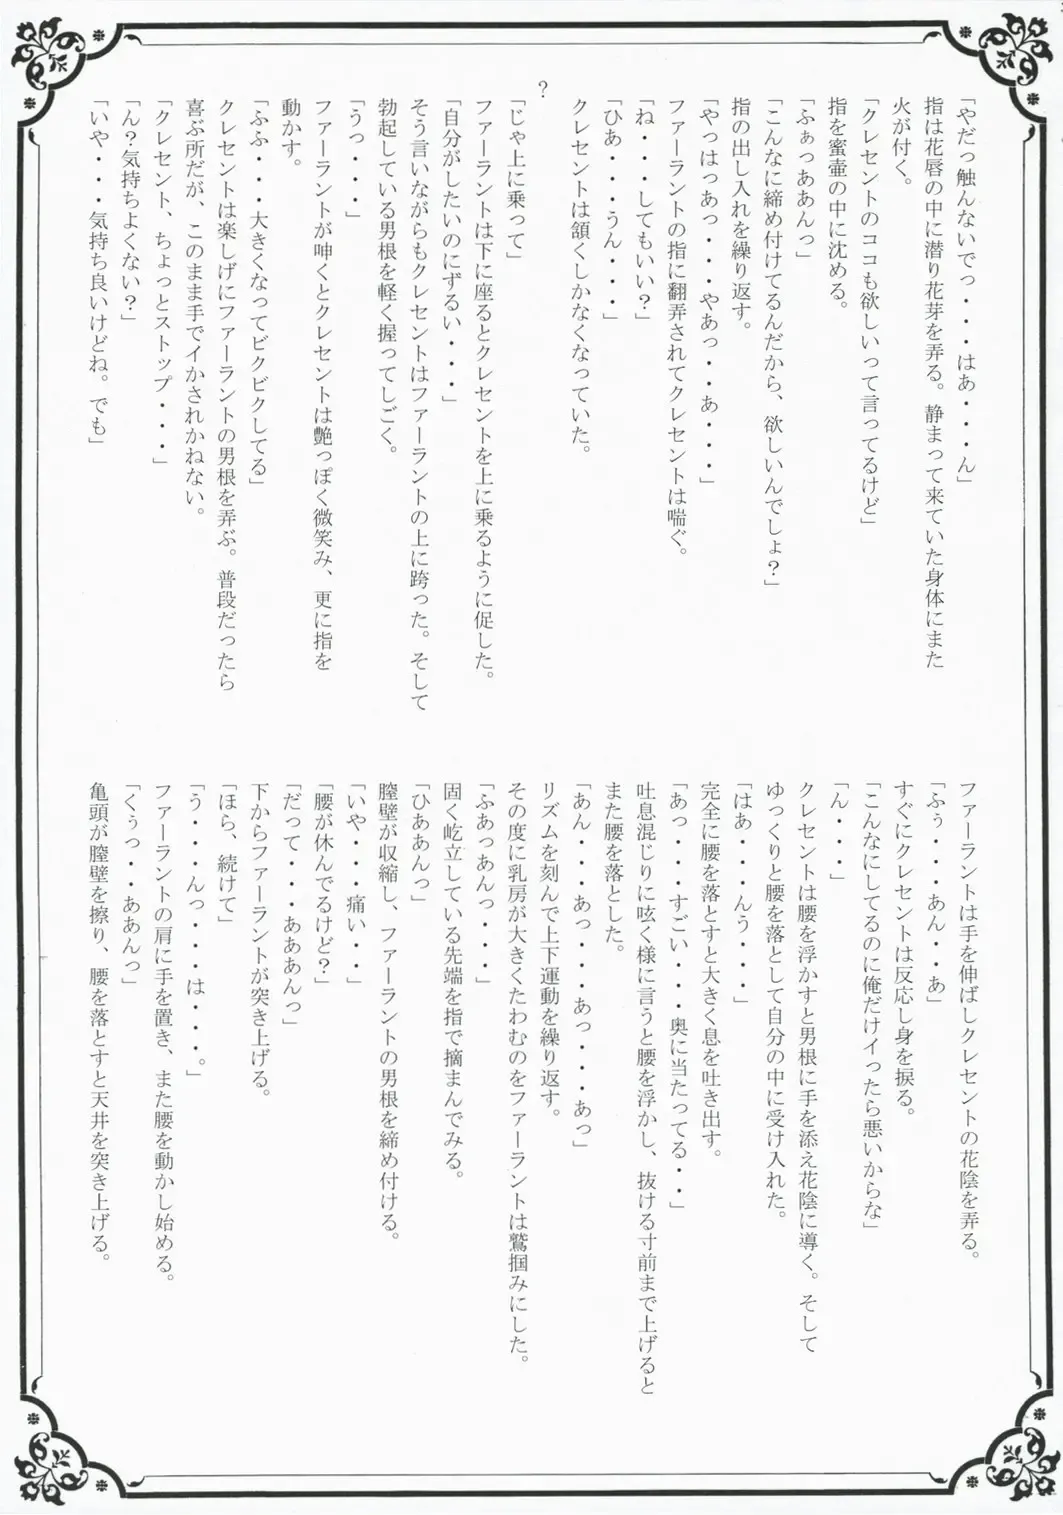 「やだっ触んないでっ・・・はあ・・・ん」
指は花唇の中に潜り花芽を弄る。静まって来ていた身体にまた
火が付く。
「クレセントのココも欲しいって言ってるけど」
指を蜜壷の中に沈める。
「ふぁっああんっ」
「こんなに締め付けてるんだから、欲しいんでしょ？」
指の出し入れを繰り返す。
「やっはっあっ・・・やあっ・・あ・・・」
ファーラントの指に翻弄されてクレセントは喘ぐ。
「ね・・・してもいい？」
「ひあ・・・うん・・・」
クレセントは頷くしかなくなっていた。
?
「じゃ上に乗って」
ファーラントは下に座るとクレセントを上に乗るように促した。
「自分がしたいのにずるい・・・」
そう言いながらもクレセントはファーラントの上に跨った。そして
勃起している男根を軽く握ってしごく。
「うっ・・・」
ファーラントが呻くとクレセントは艶っぽく微笑み、更に指を
動かす。
「ふふ・・・大きくなってビクビクしてる」
クレセントは楽しげにファーラントの男根を弄ぶ。普段だったら
喜ぶ所だが、このまま手でイかされかねない。
「クレセント、ちょっとストップ・・・」
「ん？気持ちよくない？」
「いや・・・気持ち良いけどね。でも」
ファーラントは手を伸ばしクレセントの花陰を弄る。
「ふぅ・・・あん・・あ」
すぐにクレセントは反応し身を捩る。
「こんなにしてるのに俺だけイったら悪いからな」
「ん・・・」
クレセントは腰を浮かすと男根に手を添え花陰に導く。そして
ゆっくりと腰を落として自分の中に受け入れた。
「はあ・・・んう・・・」
完全に腰を落とすと大きく息を吐き出す。
「あっ・・・すごい・・・奥に当たってる・・」
吐息混じりに呟く様に言うと腰を浮かし、抜ける寸前まで上げると
また腰を落とした。
「あん・・・あっ・・・あっ・・・あっ」
リズムを刻んで上下運動を繰り返す。
その度に乳房が大きくたわむのをファーラントは鷲掴みにした。
「ふあっあんっ・・・」
固く屹立している先端を指で摘まんでみる。
「ひああんっ」
膣壁が収縮し、ファーラントの男根を締め付ける。
「いや・・・痛い・・」
「腰が休んでるけど？」
「だって・・・あああんっ」
下からファーラントが突き上げる。
「ほら、続けて」
「う・・・んっ・・・は・・・。」
ファーラントの肩に手を置き、また腰を動かし始める。
「くぅっ・・ああんっ」
亀頭が膣壁を擦り、腰を落とすと天井を突き上げる。